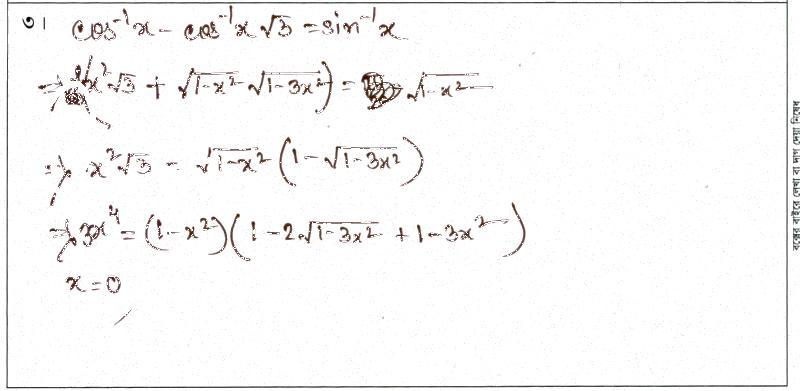 ৩। cos⁻¹x - cos⁻¹x√3 = sin⁻¹x
⇒ x²√3 + √1-x² √1-3x²) = √1-x²
⇒ x²√3 = √1-x² (1-√1-3x²)
⇒ 3x⁴ = (1-x²)(1-2√1-3x² + 1-3x²)
x = 0
বক্সের বাইরে লেখা বা দাগ দেয়া নিষেধ